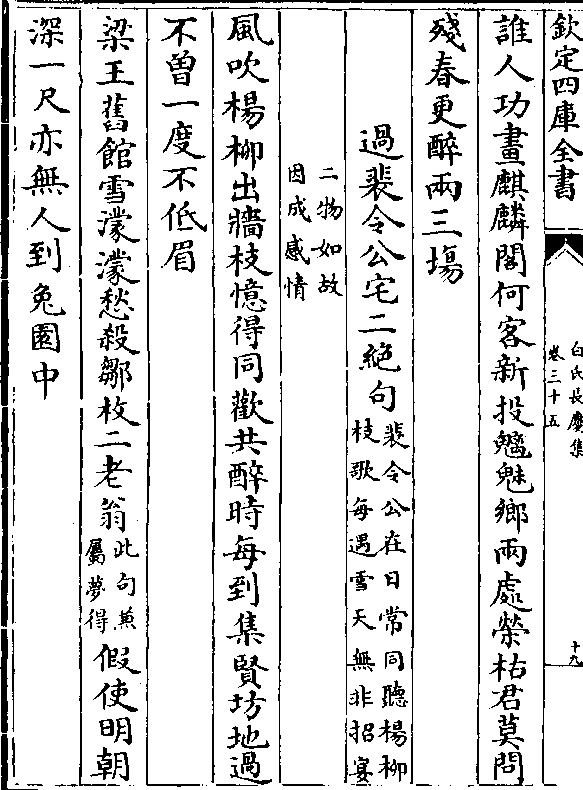 欽定四庫全書
白氏長慶集
卷三十五
十九
誰人功畫麒麟閣何客新投魑魅鄉兩處榮枯君莫問
殘春更醉兩三塲
過裴令公宅二絶句
裴令公在日常同聽楊柳
枝歌每遇雪天無非招宴
二物如故
因成感情
風吹楊柳出牆枝憶得同歡共醉時每到集賢坊地過
不曽一度不低眉
梁王舊館雪濛濛愁殺鄒枚二老翁
此句兼
屬夢得
假使明朝
深一尺亦無人到兔園中